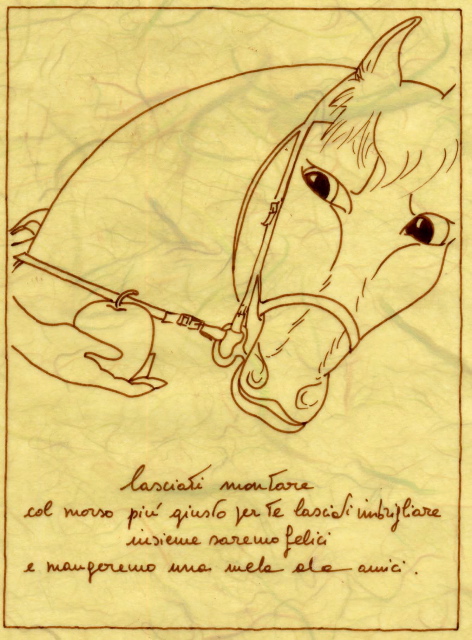 lasciati montare
col morso più giusto per te lasciati imbrigliare
insieme saremo felici
e mangeremo una mela da amici.